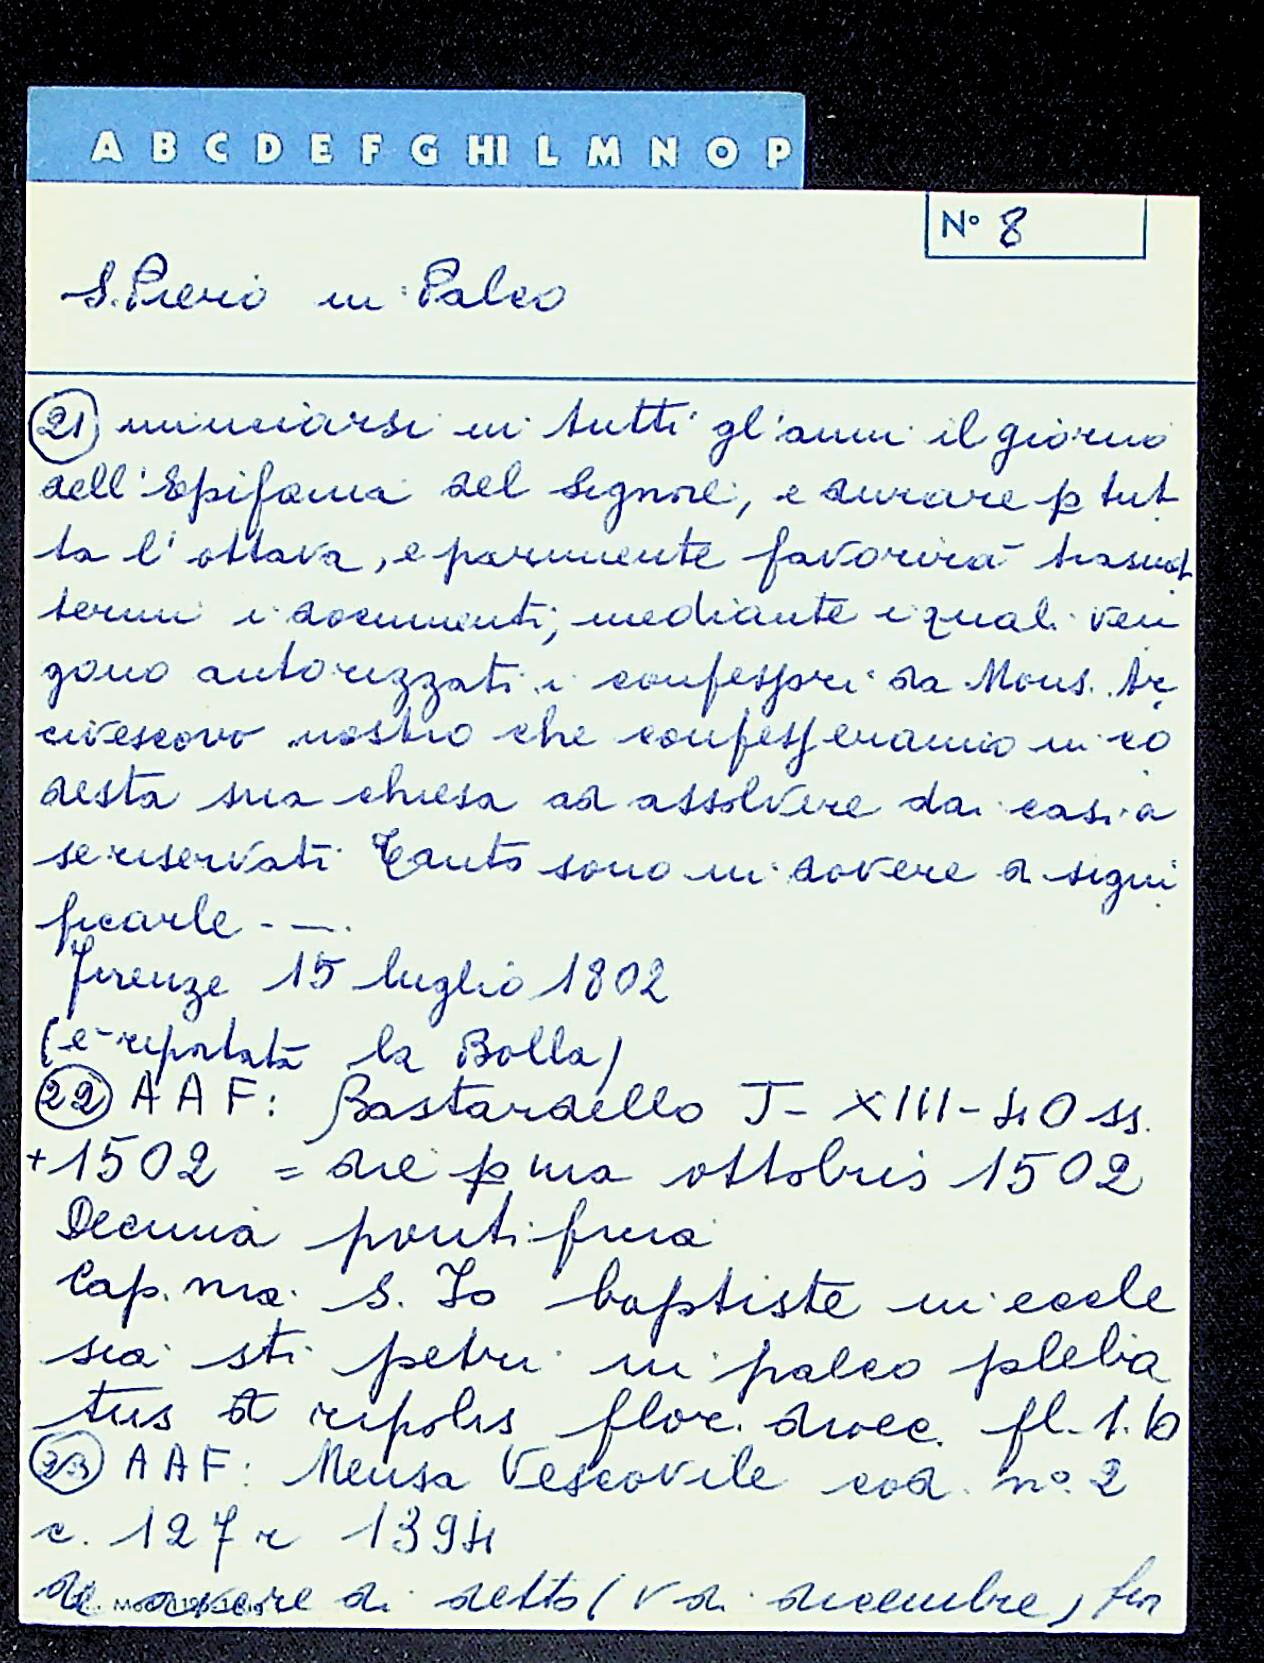 A B C D E F G HI L M N O P
N° 8
S. Piero in Palco
21 minciarsi in tutti gl'anni il giorno
dell'Epifania del Signore, e durare p tut
ta l'ottava, e parimente favorirà trasmet
termi i documenti, mediante i quali ven
gono autorizzati i confessori da Mons. Ar
civescovo nostro che confesseranno in co
desta sua chiesa ad assolvere dai casi a
se riservati Tanto sono in dovere a signi
ficarle - —.
Firenze 15 luglio 1802
(è riportata la Bolla)
22 AAF: Bastardello I-XIII-40 ss.
+1502 = die p ma ottobris 1502
Decima pontificia
Cap. nia. S. Jo baptiste in eccle
sia sti petri in palco pleba
tus d ripolis flor. dioec. fl. 1. 10
23 AAF: Mensa Vescovile cod. n°. 2
c. 127 r 1394
de avere di detto (V di dicembre) fior